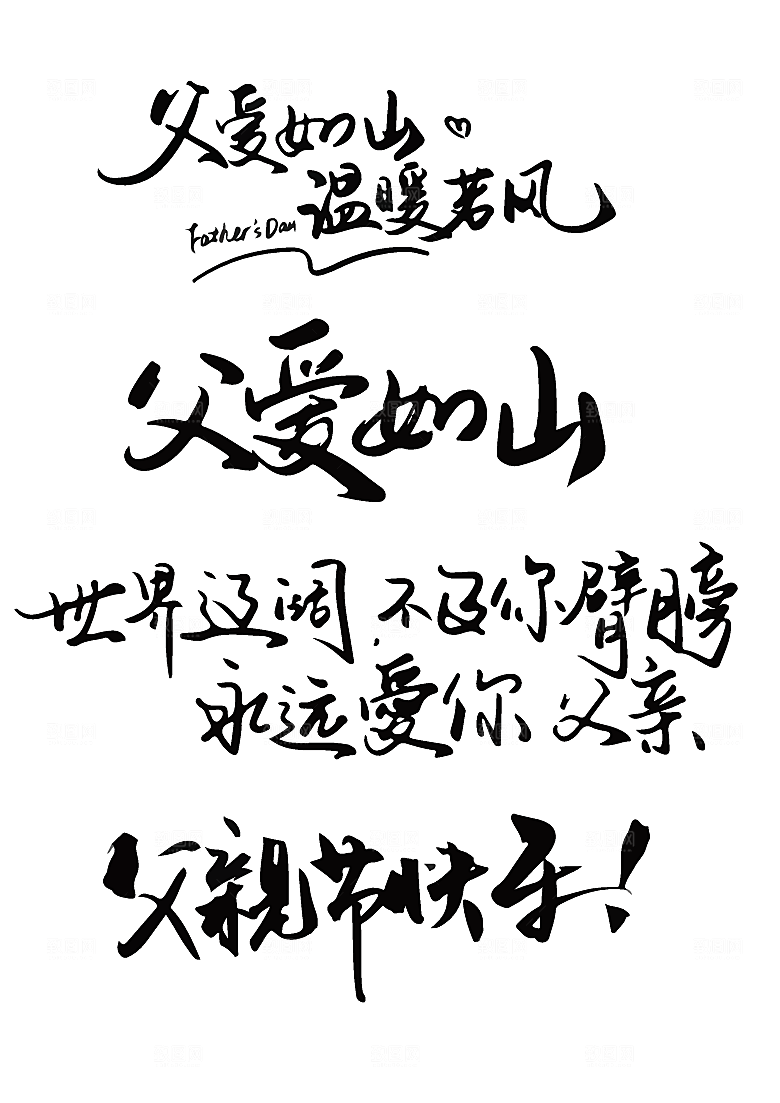 父爱如山
温暖若风
Father's Day
父爱如山
世界辽阔 不及你臂膀
永远愛你 父亲
父親节快乐！